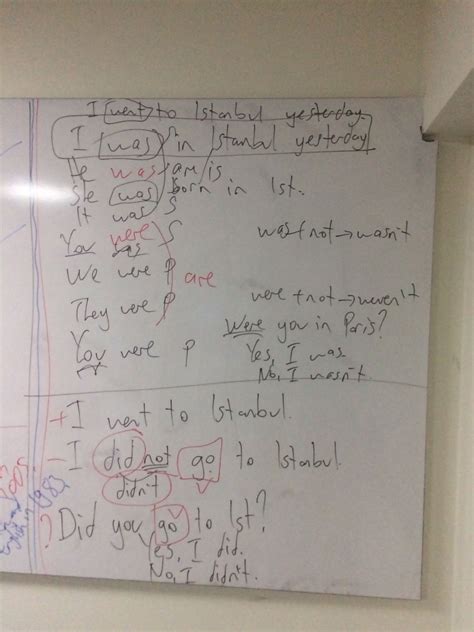 I went to Istanbul yesterday.
I was in Istanbul yesterday
He was am is
She was born in Ist.
It was S
You were S
was + not → wasn't
We were P are
were + not → weren't
They were P
Were you in Paris?
You were P
Yes, I was.
No, I wasn't.
+ I went to Istanbul.
- I did not go to Istanbul.
didn't
? Did you go to Ist?
Yes, I did.
No, I didn't.